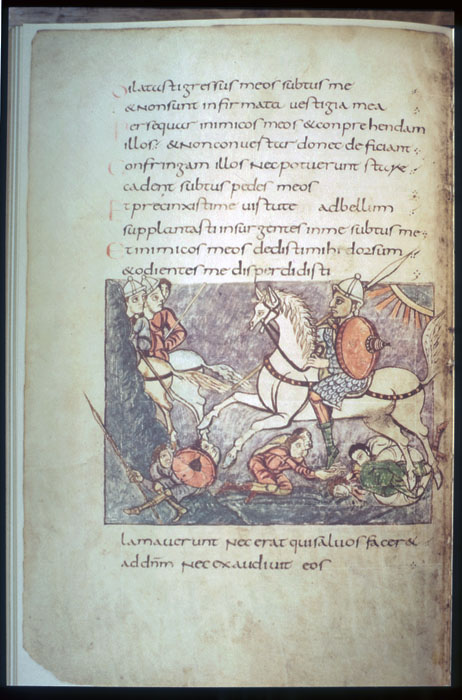 Dilatasti gressus meos subtus me
& non sunt infirmata vestigia mea
Persequar inimicos meos & conprehendam
illos & non convertur donec deficiant
Confringam illos nec potuerunt stare
cadent subtus pedes meos
Et precinxisti me virtute ad bellum
supplantasti insurgentes in me subtus me
Et inimicos meos dedisti mihi dorsum
& odientes me disperdidisti
lamaverunt nec erat qui salvos facer&
ad dnm nec exaudivit eos